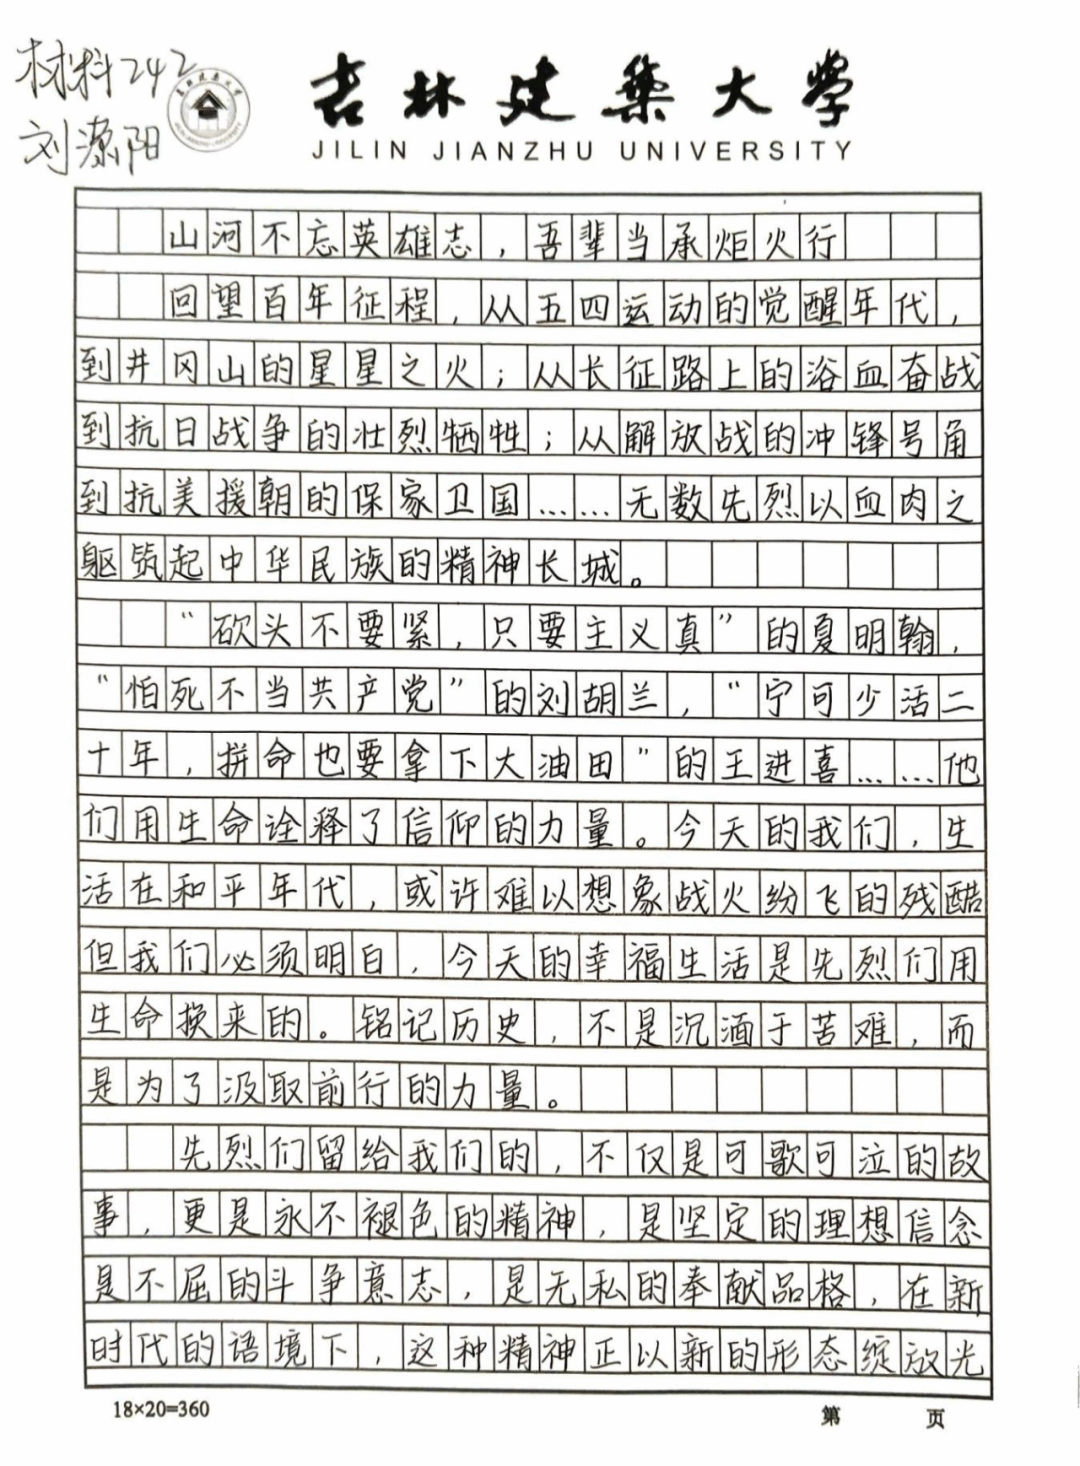 材料242
刘潆阳
吉林建筑大学
JILIN JIANZHU UNIVERSITY
山河不忘英雄志，吾辈当承炬火行
回望百年征程，从五四运动的觉醒年代，
到井冈山的星星之火；从长征路上的浴血奋战
到抗日战争的壮烈牺牲；从解放战的冲锋号角
到抗美援朝的保家卫国……无数先烈以血肉之
躯筑起中华民族的精神长城。
“砍头不要紧，只要主义真”的夏明翰，
“怕死不当共产党”的刘胡兰，“宁可少活二
十年，拼命也要拿下大油田”的王进喜……他
们用生命诠释了信仰的力量。今天的我们，生
活在和平年代，或许难以想象战火纷飞的残酷
但我们必须明白，今天的幸福生活是先烈们用
生命换来的。铭记历史，不是沉湎于苦难，而
是为了汲取前行的力量。
先烈们留给我们的，不仅是可歌可泣的故
事，更是永不褪色的精神，是坚定的理想信念
是不屈的斗争意志，是无私的奉献品格，在新
时代的语境下，这种精神正以新的形态绽放光
18×20=360
第 页